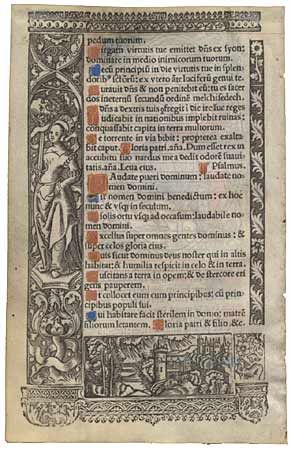 pedum tuorum.
irgam virtutis tue emittet dñs ex syon:
dominare in medio inimicorum tuorum.
ecũ principiũ in die virtutis tue in splen
doribꝰ sctõrũ: ex vtero ãte luciferũ genui te.
uravit dñs & non penitebit eũ: tu es sacer
dos ineternũ secundũ ordinẽ melchisedech.
ñs a dextris tuis: cõfregit ĩ die ire sue reges
udicabit in nationibus implebit ruinas:
conquassabit capita in terra multorum.
e torrente in via bibit: propterea exalta
bit caput. loria patri. aña. Dum esset rex in
accubitu suo nardus mea dedit odorẽ suaui
tatis. aña. Leua eius. Psalmus.
Audate pueri dominum: laudate no
men domini.
it nomen domini benedictum: ex hoc
nunc & vsqȝ in seculum.
solis ortu vsqȝ ad occasum: laudabile no
men domini.
xcelsus super omnes gentes dominus: &
super celos gloria eius.
uis sicut dominus deus noster qui in altis
habitat: & humilia respicit in celo & in terra.
uscitans a terra in opem: & de stercore eri
gens pauperem.
t collocet eum cum principibus: cũ prin
cipibus populi sui.
ui habitare facit sterilem in domo: matrẽ
filiorum letantem. loria patri & filio. &c.